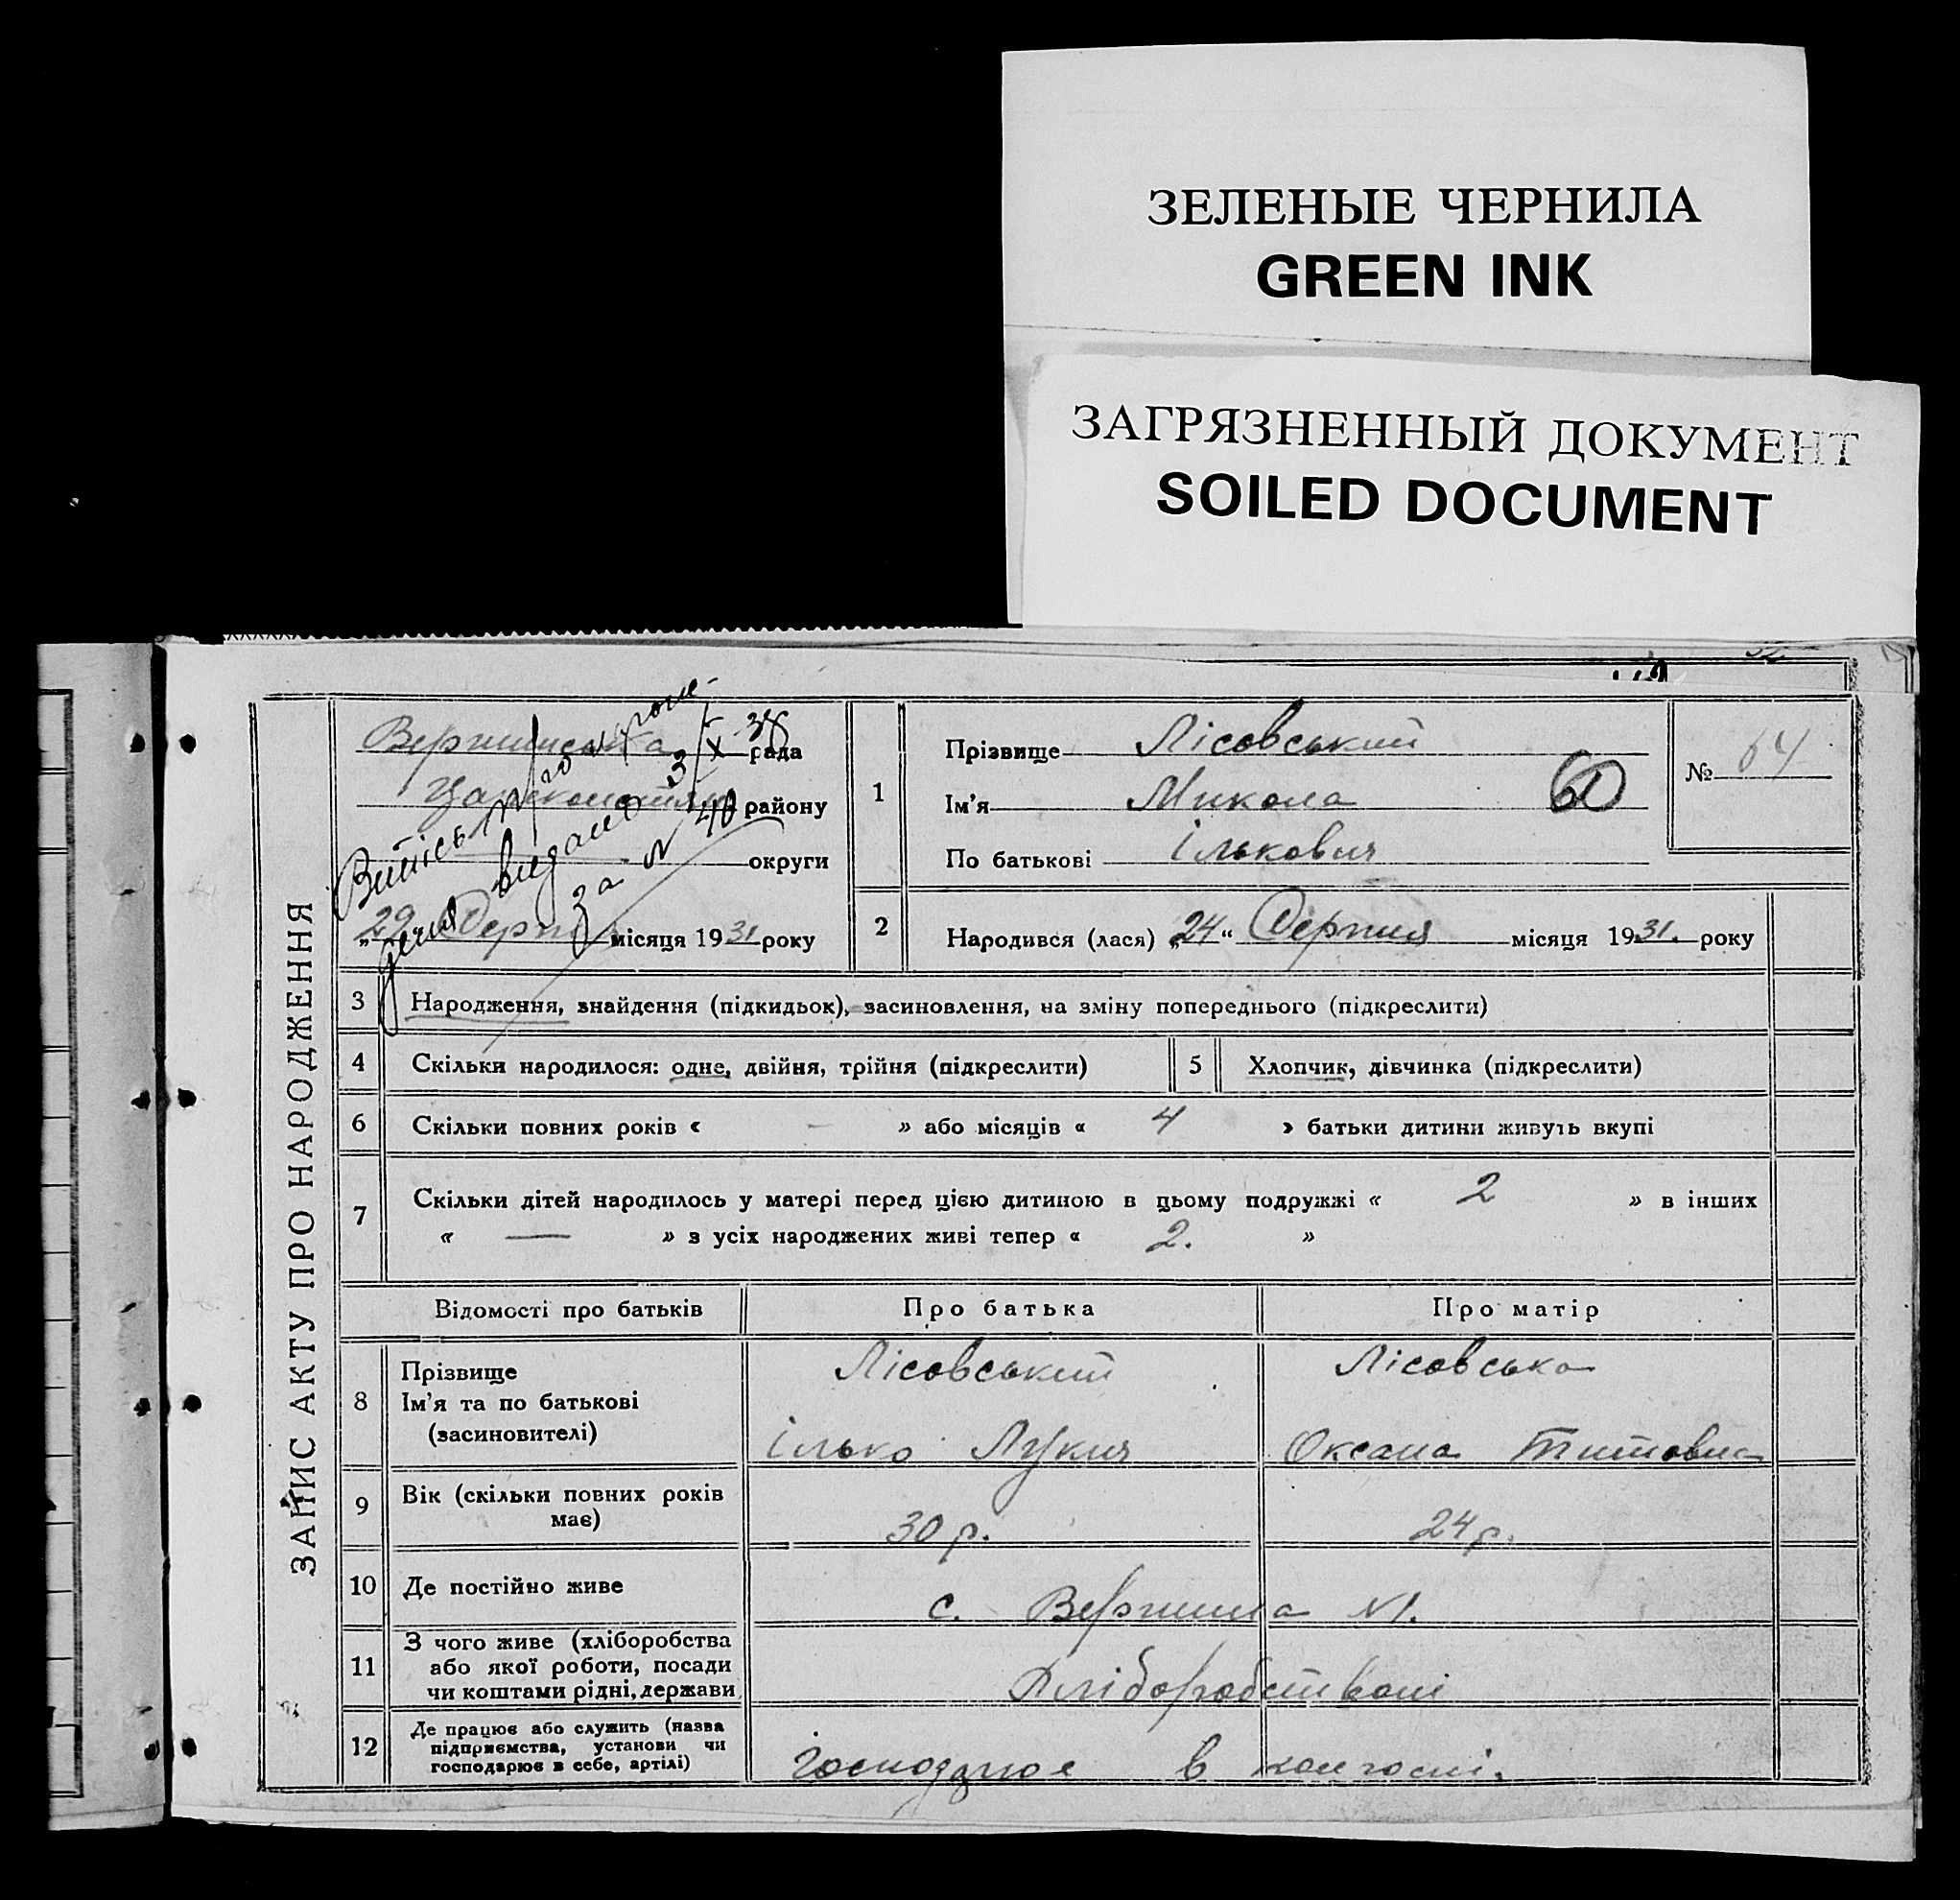 ЗЕЛЕНЫЕ ЧЕРНИЛА
GREEN INK
ЗАГРЯЗНЕННЫЙ ДОКУМЕНТ
SOILED DOCUMENT
ЗАПИС АКТУ ПРО НАРОДЖЕННЯ
Вершинська рада
району
округи
"29 Серпня місяця 1931 року
Витяг про народже-
ння видано 3/IX-38
за № 40
1
Прізвище Лісовський
Ім'я Микола
60
По батьковіІлькович
№ 64
2
Народився (лася) „24“ Серпня місяця 1931. року
3 Народження, знайдення (підкидьок), засиновлення, на зміну попереднього (підкреслити)
4 Скільки народилося: одне, двійня, трійня (підкреслити) 5 Хлопчик, дівчинка (підкреслити)
6 Скільки повних років « – » або місяців « 4 » батьки дитини живуть вкупі
7 Скільки дітей народилось у матері перед цією дитиною в цьому подружжі « 2 » в інших
« — » з усіх народжених живі тепер « 2. »
Відомості про батьків Про батька Про матір
8 Прізвище Лісовський Лісовська
Ім'я та по батькові
(засиновителі) Ілько Лукич Оксана Титовна
9 Вік (скільки повних років
має) 30 р. 24 р.
10 Де постійно живе с. Вершина №1.
11 З чого живе (хліборобства
або якої роботи, посади
чи коштами рідні, держави Хліборобством
12 Де працює або служить (назва
підприємства, установи чи
господарює в себе, артілі) господарює в колгоспі.